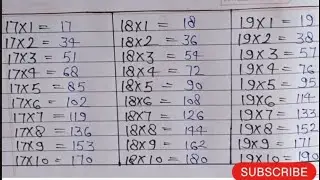 17x1 = 17 18x1 = 18 19x1 = 19
17x2 = 34 18x2 = 36 19x2 = 38
17x3 = 51 18x3 = 54 19x3 = 57
17x4 = 68 18x4 = 72 19x4 = 76
17x5 = 85 18x5 = 90 19x5 = 95
17x6 = 102 18x6 = 108 19x6 = 114
17x7 = 119 18x7 = 126 19x7 = 133
17x8 = 136 18x8 = 144 19x8 = 152
17x9 = 153 18x9 = 162 19x9 = 171
17x10 = 170 18x10 = 180 19x10 = 190
SUBSCRIBE